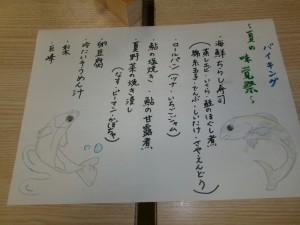 バイキング
～夏の味覚祭～
・海鮮ちらし寿司
(蒸しエビ・いくら・鮭のほぐし煮
錦糸玉子・でんぶ・しいたけ・さやえんどう)
・ロールパン(ツナ・いちごジャム)
・鮎の塩焼き ・鮎の甘露煮
・夏野菜の焼き浸し
(なす・ピーマン・かぼちゃ)
・卵豆腐
・冷たいそうめん汁
・梨
・巨峰